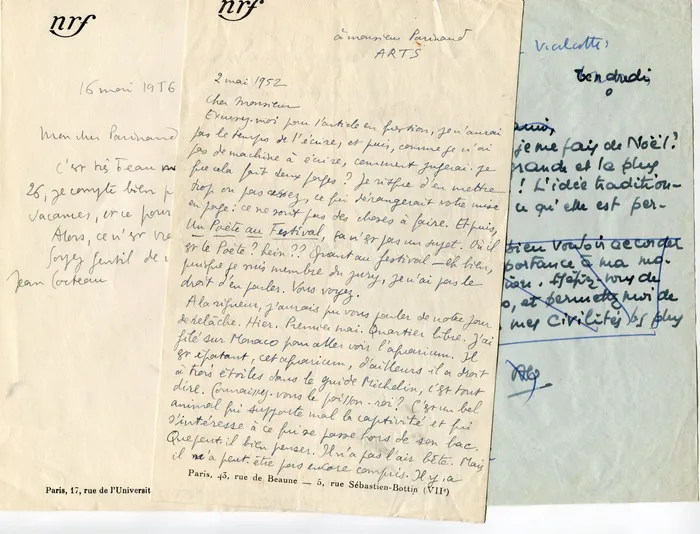 nrf
16 mai 1956
Mon cher Parinaud
C'est très beau
26, je compte bien
vacances, et ce pour
Alors, ce n'est
Soyez gentil de
Jean Cocteau
Paris, 17, rue de l'Universit
nrf
à monsieur Parinaud
ARTS
2 mai 1952
Cher Monsieur
Excusez-moi pour l'article en question, je n'aurai
pas le temps de l'écrire, et puis, comme je n'ai
pas de machine à écrire, comment jugerai-je
que cela fait deux pages ? Je risque d'en mettre
trop ou pas assez, ce qui dérangerait votre mise
en page : ce ne sont pas des choses à faire. Et puis,
Un Poète au Festival, ça n'est pas un sujet. Où il
est le Poète ? hein ?? Quant au festival — eh bien,
puisque je suis membre du jury, je n'ai pas le
droit d'en parler. Vous voyez.
A la rigueur, j'aurais pu vous parler de notre jour
de relâche. Hier. Premier mai. Quartier libre. J'ai
filé sur Monaco pour aller voir l'aquarium. Il
est épatant, cet aquarium, d'ailleurs il a droit
à trois étoiles dans le guide Michelin, c'est tout
dire. Connaissez-vous le poisson-roi ? C'est un bel
animal qui supporte mal la captivité et qui
s'intéresse à ce qui se passe hors de son bac.
Que peut-il bien penser. Il n'a pas l'air bête. Mais
il n'a peut-être pas encore compris. Il y a
Paris, 43, rue de Beaune — 5, rue Sébastien-Bottin (VIIe)
Vialatte
Vendredi
je me fais de Noël ?
grande et la plus
! L'idée tradition-
ce qu'elle est per-
bien vouloir accorder
portance à ma
et permettez-moi de
mes Civilités les plus